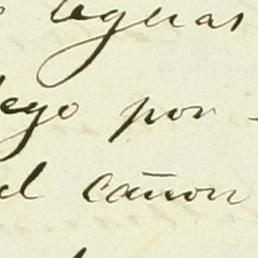 leguas
ego por
el cañon